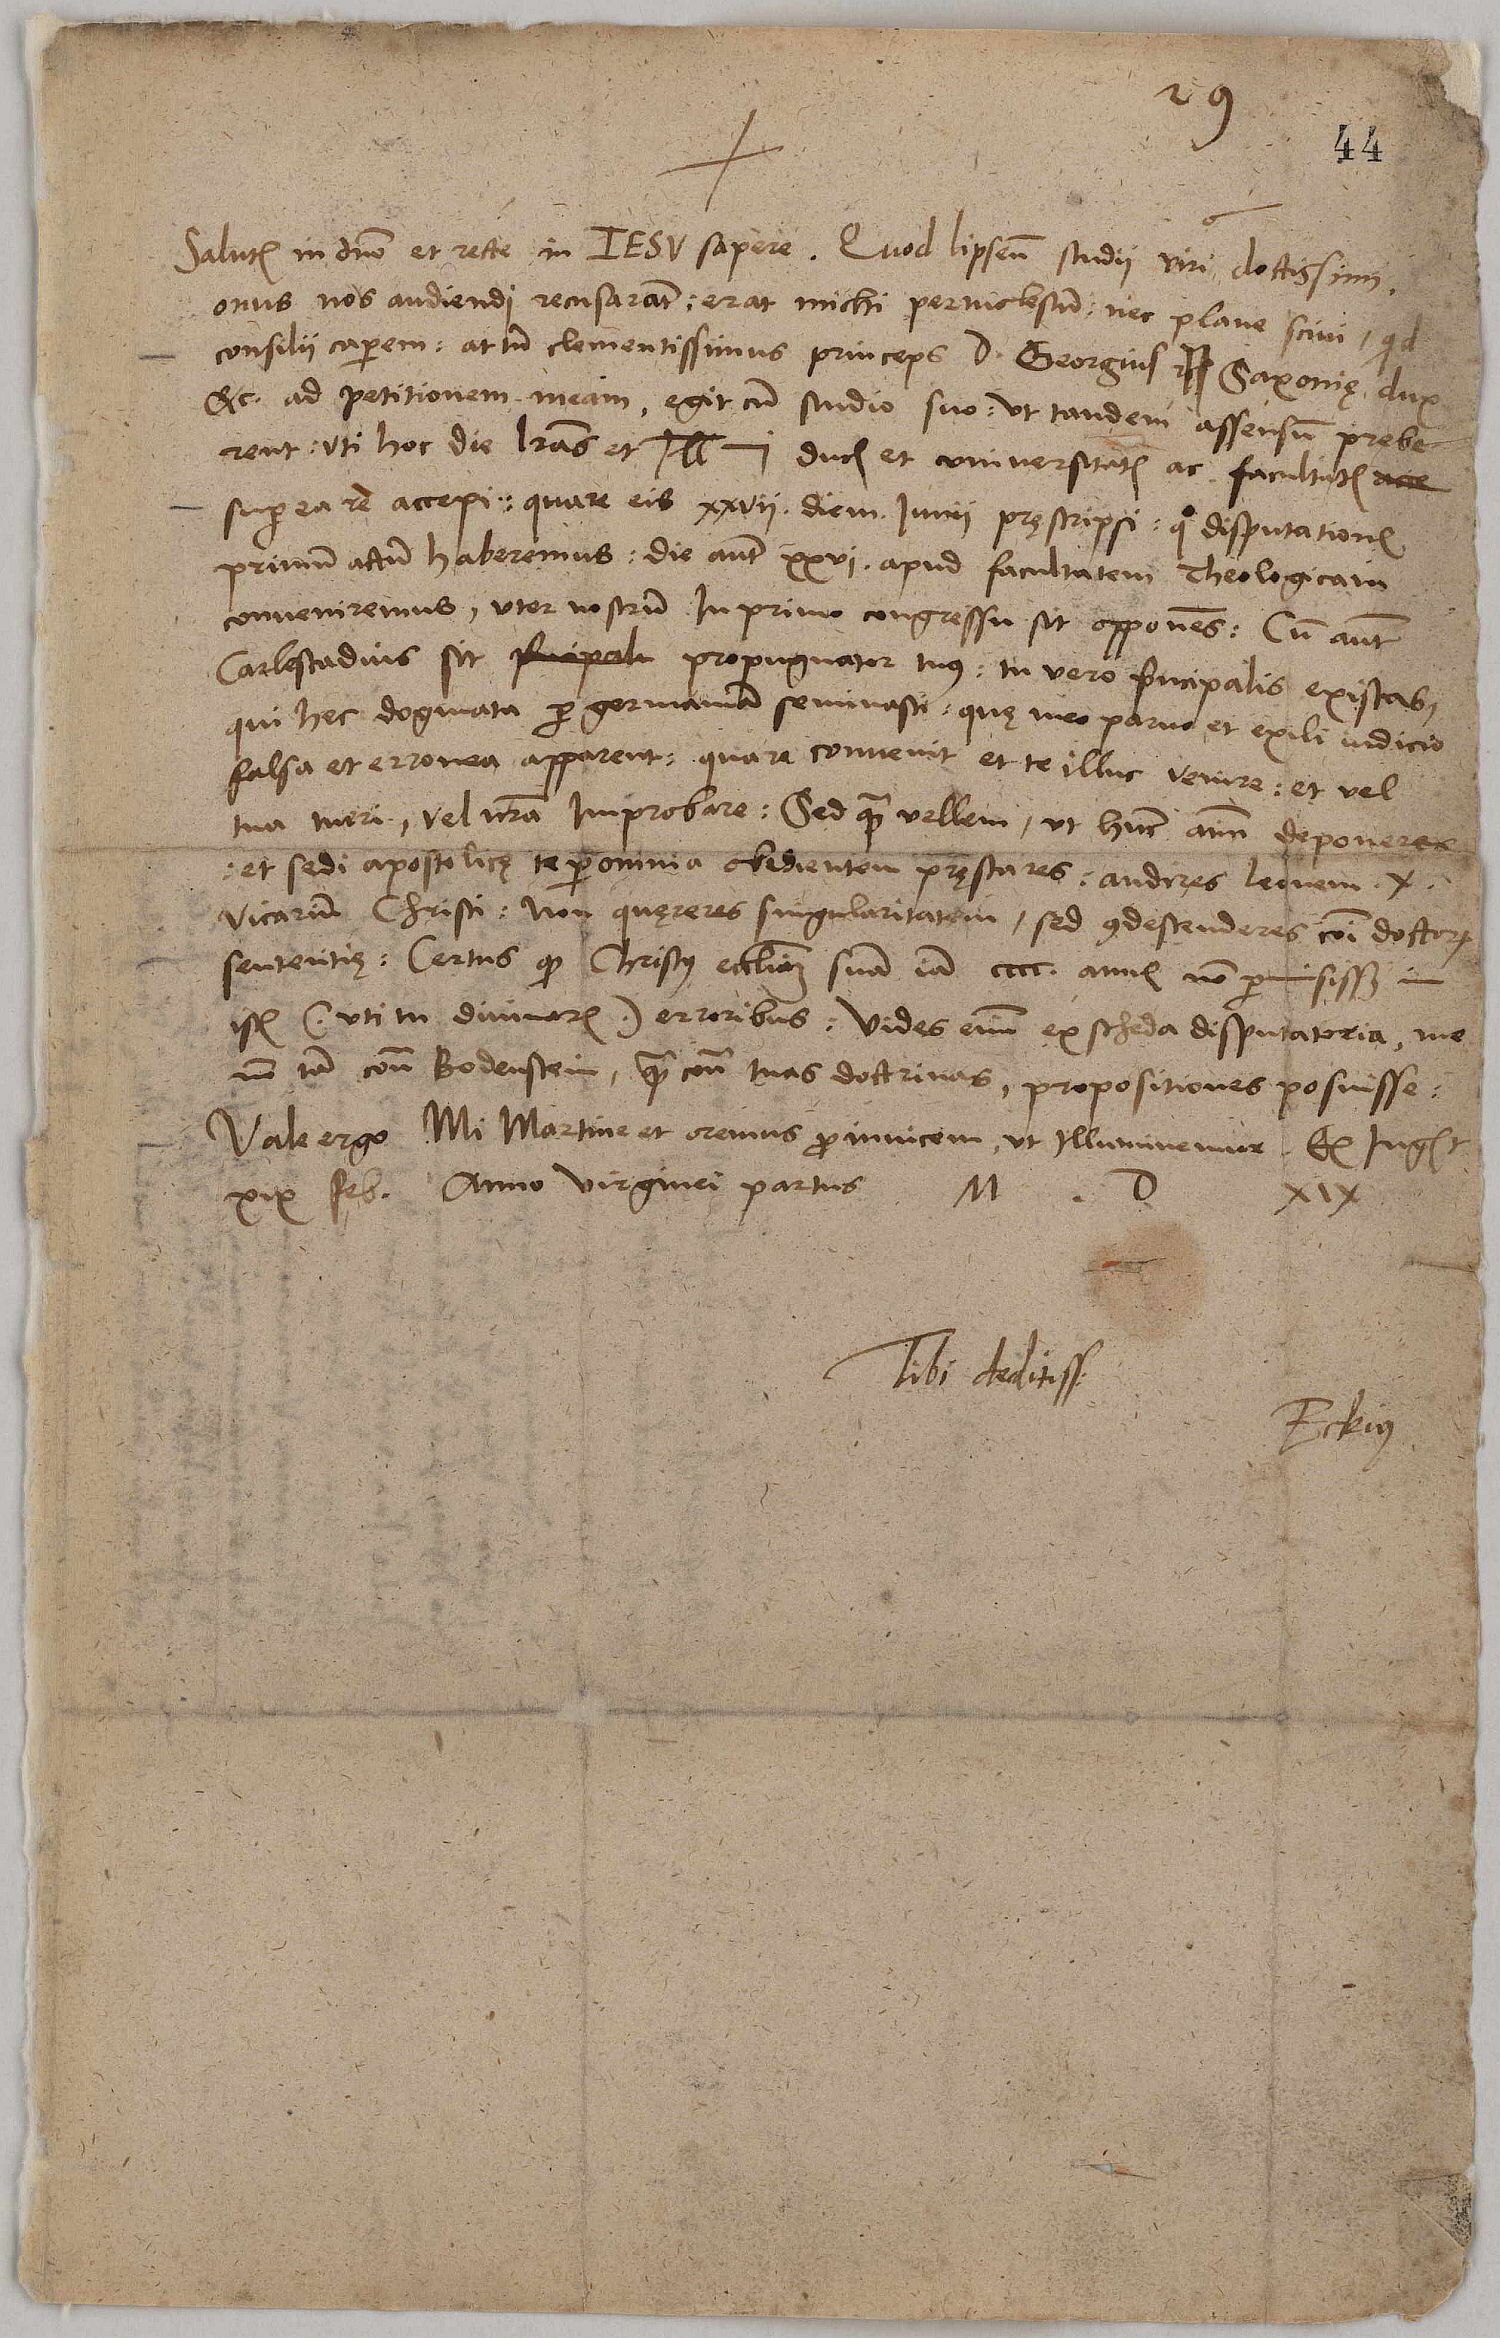 29
44
Salutē in dn̄o et recte in IESV sapere. Quod lipsen̄ studii viri doctissimi,
onus nos audiendi recusarāt: erat michi permolestū: nec plane sciui, qd
consilii caperem: at tn̄ clementissimus princeps D. Georgius Saxonię dux
&c. ad petitionem meam, egit cū studio suo: vt tandem assensū prębe
rent: vti hoc die lr̄as et Ill ducꝭ et vniuersitatꝭ ac facultatꝭ
suꝑ ea re accepi: quare eis xxvii. diem Junii pręscripsi: qͦ disputationꝭ
primū actū haberemus: die aūt xxvi. apud facultatem Theologicam
conueniremus, vter nostrū In primo congressu sit opponēs: Cū aūt
Carlestadius sit propugnator tuꝰ: tu vero principalis existas,
qui hec dogmata ꝑ germaniā seminasti: quę meo paruo et exili iudicio
falsa et erronea apparent: quare conuenit et te illuc venire: et vel
tua tueri, vel nr̄a Improbare: Sed qꝫ̄ vellem, vt hūc aīm deponeres
: et sedi apostolicę te ꝑ omnia obedientem pręstares: audires leonem .X.
Vicariū Christi: Non quęreres singularitatem, sed ꝯdescenderes cōi doctorꝝ
sententię: Certus ꝙ Christꝰ eccliaꝫ suā iā cccc. annꝭ nō ꝑmisissꝫ in
istꝭ (: vti tu diuinarꝭ :) erroribus: Vides enī ex scheda disputatoria, me
nō tā con̄ Bodenstein, qꝫ̄ con̄ tuas doctrinas, propositiones posuisse:
Vale ergo Mi Martine et oremus ꝓ inuicem, vt Illuminemur. Ex Inglst
xix feb. Anno virginei partus M . D XIX
Tibi deditiss:
Eckiꝰ